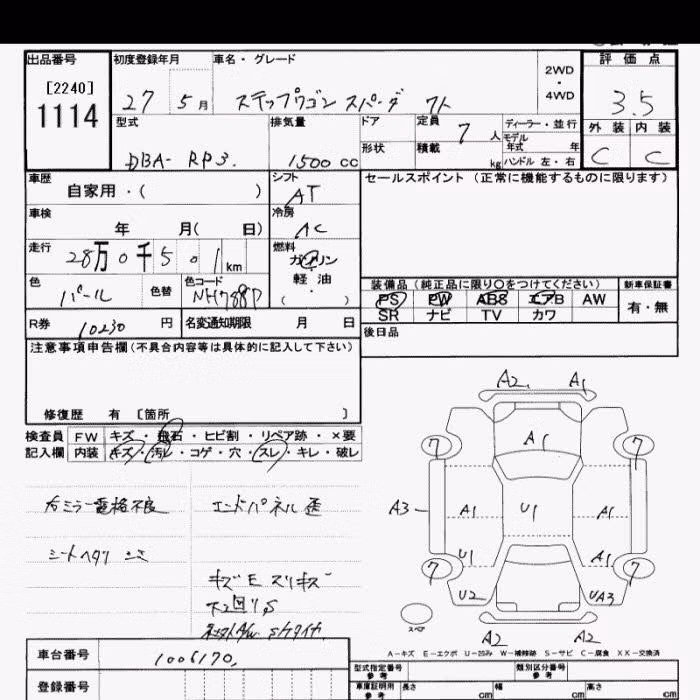 出品番号 初度登録年月 車名・グレード 評価点
[2240]
1114
27 5月 ステップワゴン スパーダ 2WD・4WD 3.5
型式 排気量 ドア 定員 7人 ディーラー・並行 外装 内装
モデル年式 年
DBA- RP3. 1500cc 形状 積載 kg ハンドル 左・右 C C
車歴 シフト セールスポイント (正常に機能するものに限ります)
自家用・( ) AT
車検 冷房
年 月( 日) AC
走行 燃料
28万0千501km ガソリン
軽油
( ・ )
色 色替 色コード
パール NH788P
装備品 (純正品に限り○をつけてください) 新車保証書
PS PW ABS エアB AW 有・無
SR ナビ TV カワ
R券 10230円 名変通知期限 月 日 後日品
注意事項申告欄(不具合内容等は具体的に記入して下さい)
修復歴 有 [箇所 ]
検査員 FW キズ・飛石・ヒビ割・リペア跡・×要
記入欄 内装 キズ・汚レ・コゲ・穴・スレ・キレ・破レ
右ミラー電格不良 エンドパネル歪
シートヘタリ
キズE スリキズ
下回りS
A2 A1
7 A1 7
A3 A1 U1 A1
U1 A1
7 7
U2 UA3
スペア
A2 A2
A-キズ E-エクボ U-凹み W-補修跡 S-サビ C-腐食 XX-交換済
車台番号 1006170
型式指定番号 参考 類別区分番号 参考
登録番号 車庫証明用 参考 長さ cm 幅 cm 高さ cm